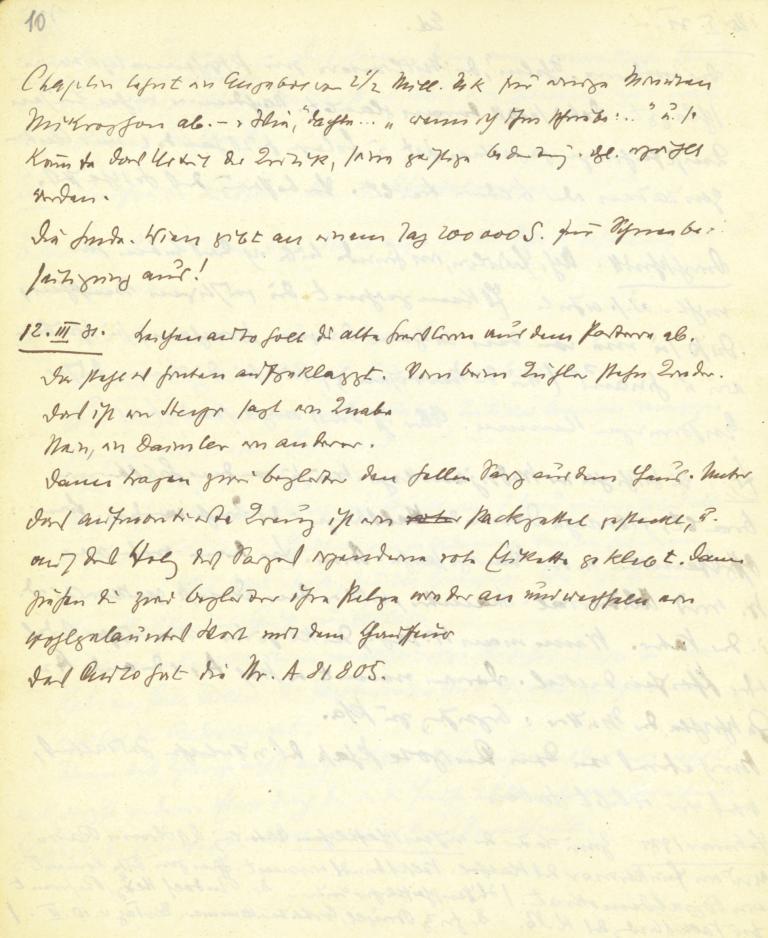 10
Chaplin lehnt ein Angebot von 2½ Mill. Mk für einige Minuten
Mikrophon ab. – "Nein," dachte ... "wenn ich ihm schriebe ..." u. s.
könnte das Urteil der Kritik, seine geistige bedeutung. erhöht
werden.
Die Gmde. Wien gibt an einem Tag 200 000 S. für Schneebe-
seitigung aus!
12. III 31. Leichenauto holt die alte aus dem Parterre ab.
Da steht es hinten aufgeklappt. Vorn beim Kühler stehn Kinder.
Das ist ein Steyr sagt ein Knabe
Nein, ein Daimler ein anderer.
Dann tragen zwei begleiter den hellen Sarg aus dem Haus. Unter
das aufmontierte Kreuz ist ein roter Packzettel gesteckt, u.
auf das Holz des Sarges irgendeine rote Etikette geklebt. Dann
ziehen die zwei begleiter ihre Pelze wieder an und wechseln ein
wohlgelauntes Wort mit dem Chauffeur
Das Auto hat die Nr. A 81 805.